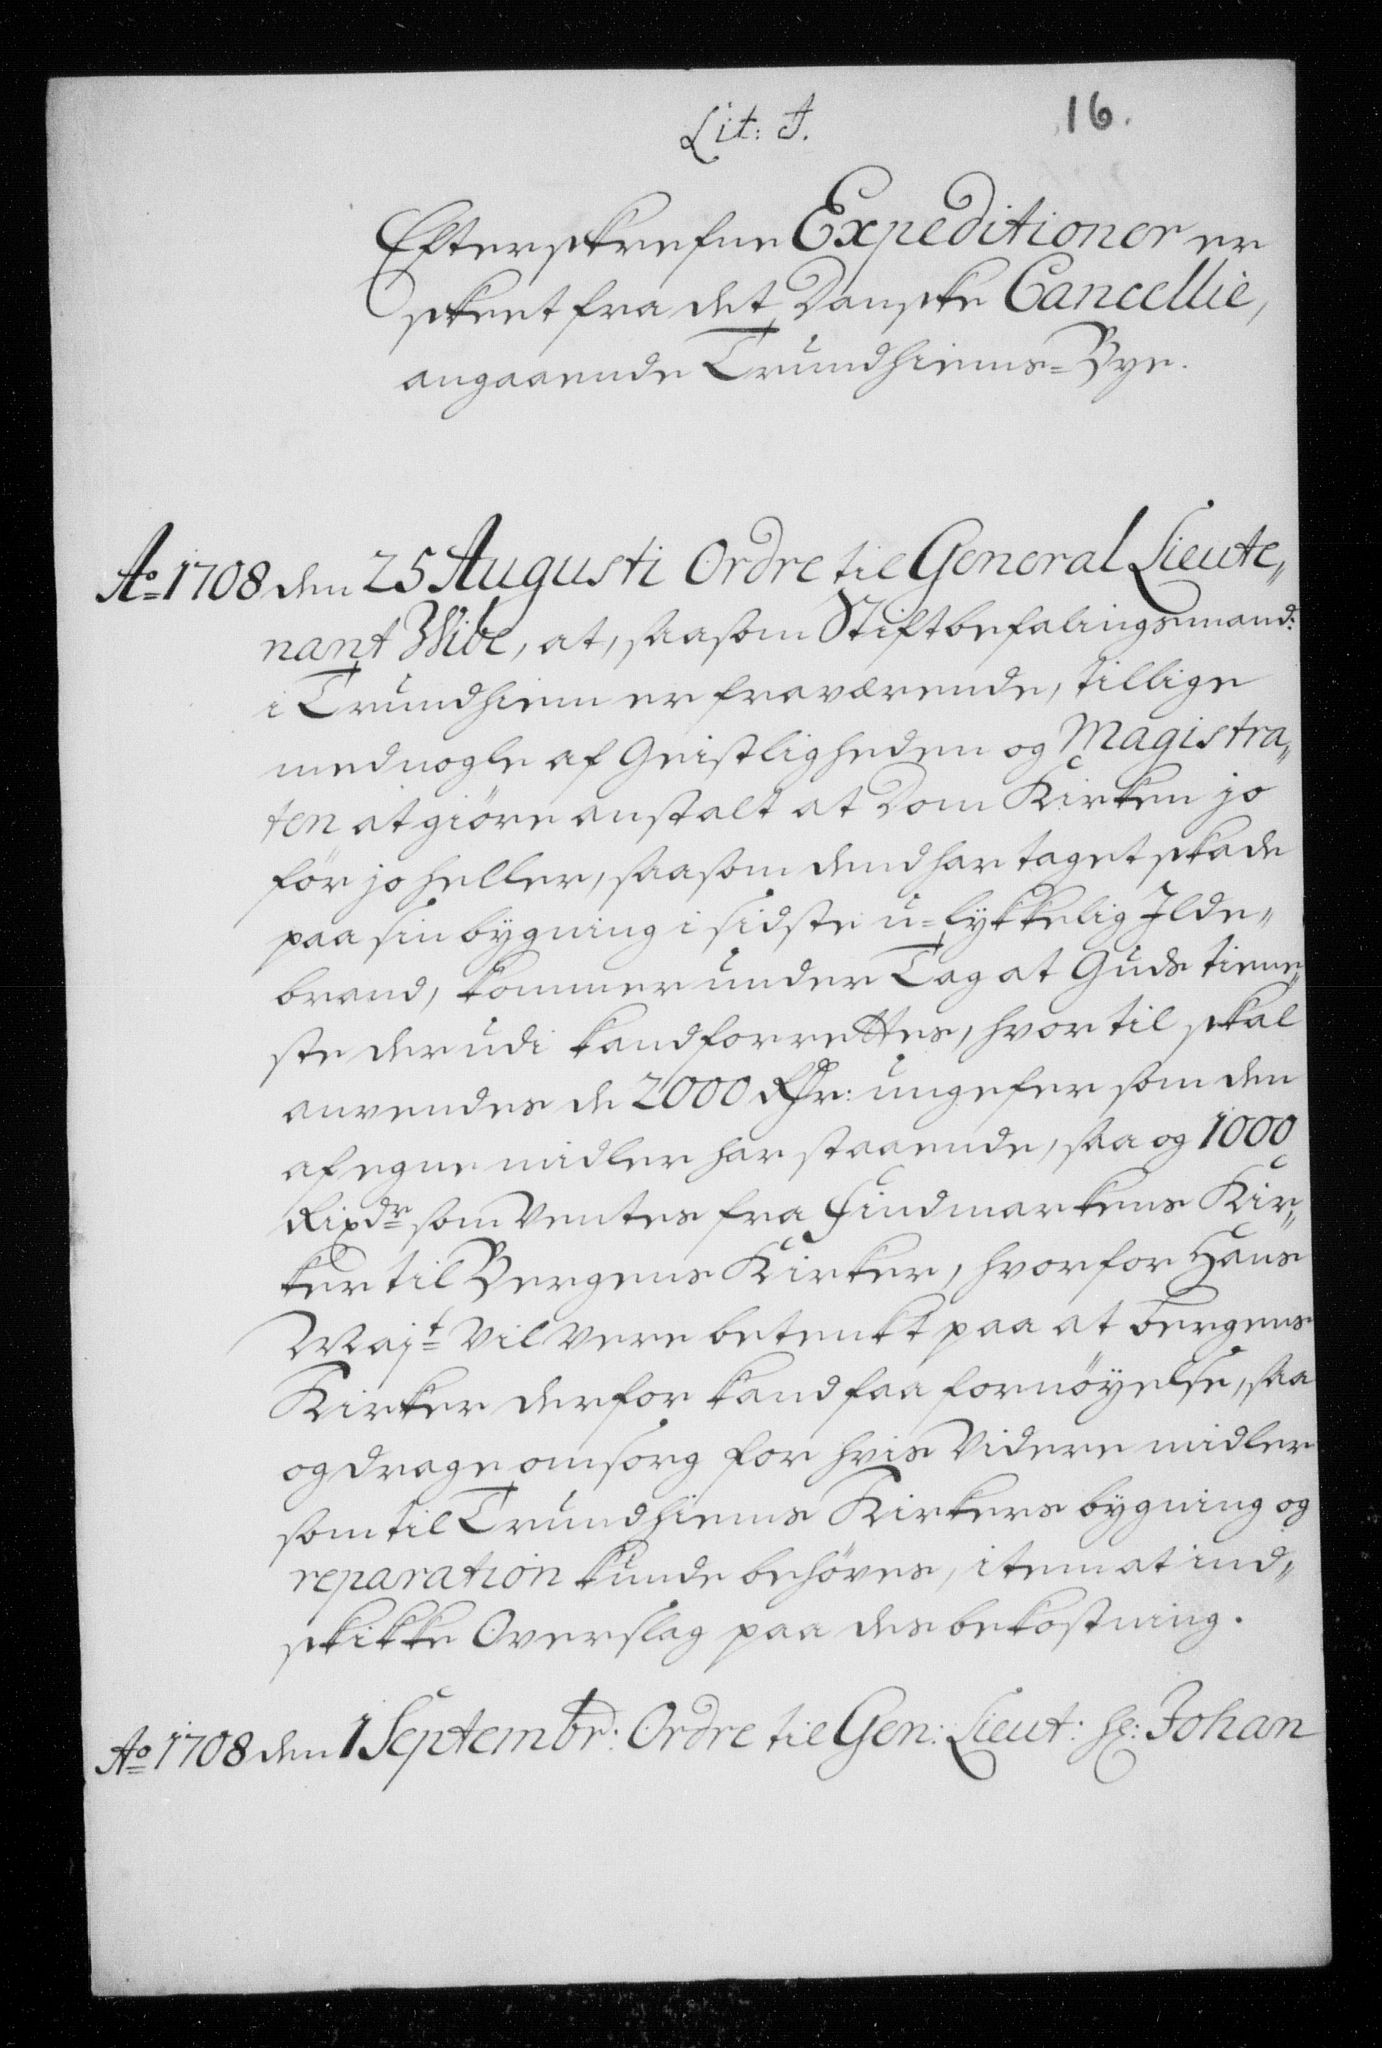 Lit: J.
16.
Efterskrefne Expeditioner er
skeet fra det Danske Cancellie,
angaaende Trundhiems-Bye.
Ao 1708 den 25 Augusti Ordre til General Lieute„
nant Wibe, at, saasom Stiftbefalingsmand:
i Trundhiem er fraværende, tillige
med nogle af Geistligheden og Magistra„
ten at giöre anstalt at Dom Kirken jo
för jo heller, saasom dend har taget skade
paa sin bÿgning i sidste u-lykkelig Ilde„
brand, kommer under Tag at Guds tiene„
ste derudi kand forrettes, hvortil skal
anvendes de 2000 Rdr: ungefer som den
af egne midler har staaende, saa og 1000
Rixdr som Ventes fra Findmarkens Kir„
ker til Bergens Kirker, hvorfor Hans
Majt Vil Vere betenkt paa at bergens
Kirker derfor kand faa fornöÿelse, saa
og drage omsorg for hvis Videre midler
som til Trundhiems Kirkers bÿgning og
reparation kunde behöves, item at ind„
skikke Overslag paa des bekostning.
Ao 1708 den 1 Septembr: Ordre til Gen: Lieut: Hr: Johan